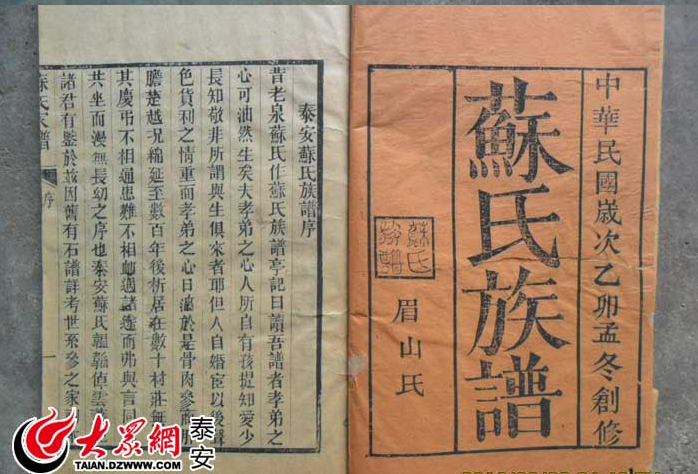 中華民國歲次乙卯孟冬創修
蘇氏族譜
蘇氏
族譜
眉山氏
泰安蘇氏族譜序
昔老泉蘇氏作蘇氏族譜亭記曰讀吾譜者孝弟之
心可油然生矣夫孝弟之心人所自有孩提知愛少
長知敬非所謂與生俱來者耶但人自婚宦以後聲
色貨利之情重而孝弟之心日漓於是骨肉參商肝
膽楚越况綿延至數百年後析居在數十村莊無
其慶弔不相通患難不相卹遇諸途而弗與言同
共坐而漫無長幼之序也泰安蘇氏
諸君有鑒於茲因舊有石譜詳考世系參之家
蘇氏家譜
序
一
大众網
泰安
TAIAN.DZWWW.COM